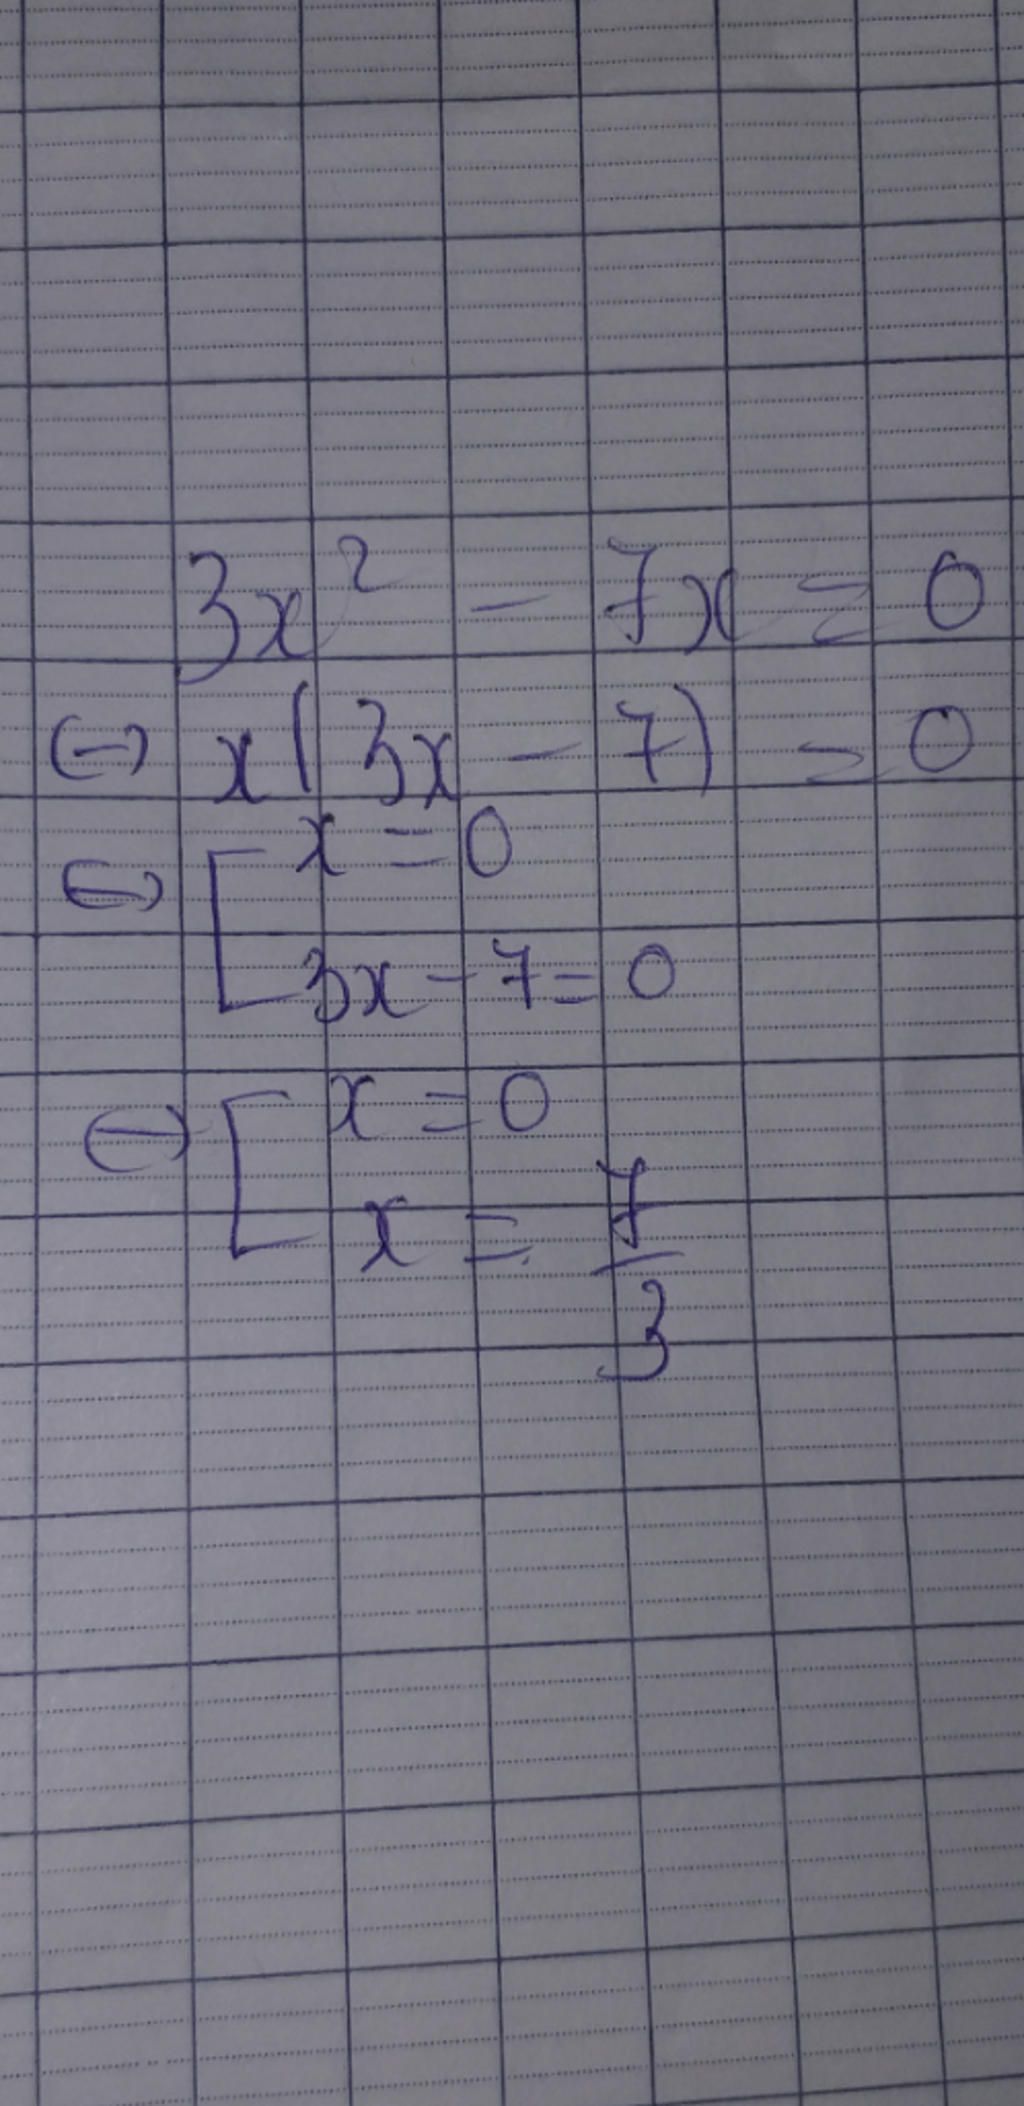 3x² - 7x = 0
⇔ x(3x - 7) = 0
⇔ [ x = 0
3x - 7 = 0
⇔ [ x = 0
x = 7/3